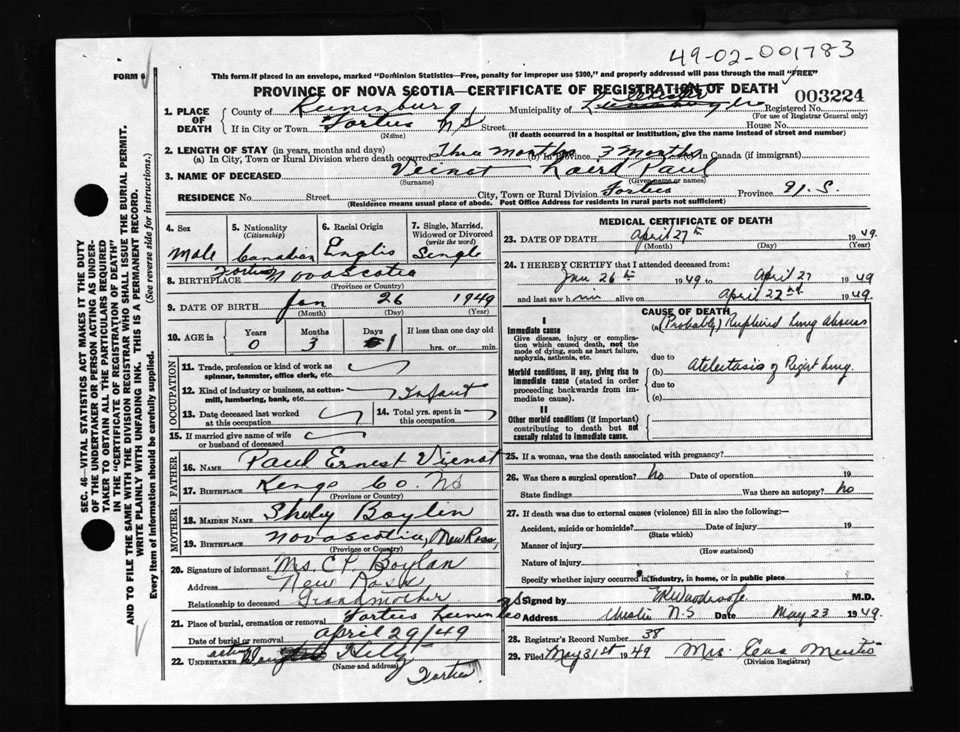 49-02-001783
FORM 6
This form if placed in an envelope, marked "Dominion Statistics—Free, penalty for improper use $300," and properly addressed will pass through the mail "FREE"
PROVINCE OF NOVA SCOTIA—CERTIFICATE OF REGISTRATION OF DEATH
003224
1. PLACE OF DEATH
County of Lunenburg, Municipality of Chester Registered No.
(For use of Registrar General only)
If in City or Town Forties N S Street House No.
(Name) (If death occurred in a hospital or institution, give the name instead of street and number)
2. LENGTH OF STAY (in years, months and days)
(a) In City, Town or Rural Division where death occurred Three months (b) In Province 3 Months In Canada (if immigrant)
3. NAME OF DECEASED Veinot Laird Paul
(Surname) (Given name or names)
RESIDENCE No. Street City, Town or Rural Division Forties Province N.S.
(Residence means usual place of abode. Post Office Address for residents in rural parts not sufficient)
SEC. 46—VITAL STATISTICS ACT MAKES IT THE DUTY
OF THE UNDERTAKER OR PERSON ACTING AS UNDER-
TAKER TO OBTAIN ALL THE PARTICULARS REQUIRED
IN THE "CERTIFICATE OF REGISTRATION OF DEATH"
AND TO FILE THE SAME WITH THE DIVISION REGISTRAR WHO SHALL ISSUE THE BURIAL PERMIT.
WRITE PLAINLY WITH UNFADING INK. THIS IS A PERMANENT RECORD.
Every item of information should be carefully supplied. (See reverse side for instructions.)
4. Sex 5. Nationality (Citizenship) 6. Racial Origin 7. Single, Married, Widowed or Divorced (write the word)
Male Canadian Englis Single
8. BIRTHPLACE Forties Nova Scotia
(Province or Country)
9. DATE OF BIRTH Jan 26 1949
(Month) (Day) (Year)
10. AGE in Years Months Days If less than one day old
0 3 1 hrs. or min.
OCCUPATION
11. Trade, profession or kind of work as
spinner, teamster, office clerk, etc.
12. Kind of industry or business, as cotton-
mill, lumbering, bank, etc. Infant
13. Date deceased last worked
at this occupation
14. Total yrs. spent in
this occupation
15. If married give name of wife
or husband of deceased
FATHER
16. NAME Paul Ernest Vienot
17. BIRTHPLACE Kings Co. NS
(Province or Country)
MOTHER
18. MAIDEN NAME Shirley Boylin
19. BIRTHPLACE Nova Scotia, New Ross,
(Province or Country)
20. Signature of informant Mrs. C P. Boylan
Address New Ross
Relationship to deceased Grandmother
21. Place of burial, cremation or removal Forties Lunen Co NS
Date of burial or removal April 29/49
22. UNDERTAKER acting Hilty
(Name and address) Forties.
MEDICAL CERTIFICATE OF DEATH
23. DATE OF DEATH April 27th 1949.
(Month) (Day) (Year)
24. I HEREBY CERTIFY that I attended deceased from:
Jan 26th 1949 to April 27 1949
and last saw him alive on April 22nd. 1949.
CAUSE OF DEATH
I
Immediate cause
Give disease, injury or complica-
tion which caused death, not the
mode of dying, such as heart failure,
asphyxia, asthenia, etc.
(a) (Probably) Ruptured Lung Abscess
due to
Morbid conditions, if any, giving rise to
immediate cause (stated in order
proceeding backwards from im-
mediate cause).
(b) Atelectasis of Right Lung.
due to
(c)
II
Other morbid conditions (if important)
contributing to death but not
causally related to immediate cause.
25. If a woman, was the death associated with pregnancy?
26. Was there a surgical operation? No Date of operation 19
State findings Was there an autopsy? No
27. If death was due to external causes (violence) fill in also the following:—
Accident, suicide or homicide? Date of injury 19
(State which)
Manner of injury
(How sustained)
Nature of injury
Specify whether injury occurred in industry, in home, or in public place
Signed by M.D.
Address Chester N.S Date May 23 1949.
28. Registrar's Record Number 38
29. Filed May 31st 1949 Mrs. Eva
(Division Registrar)